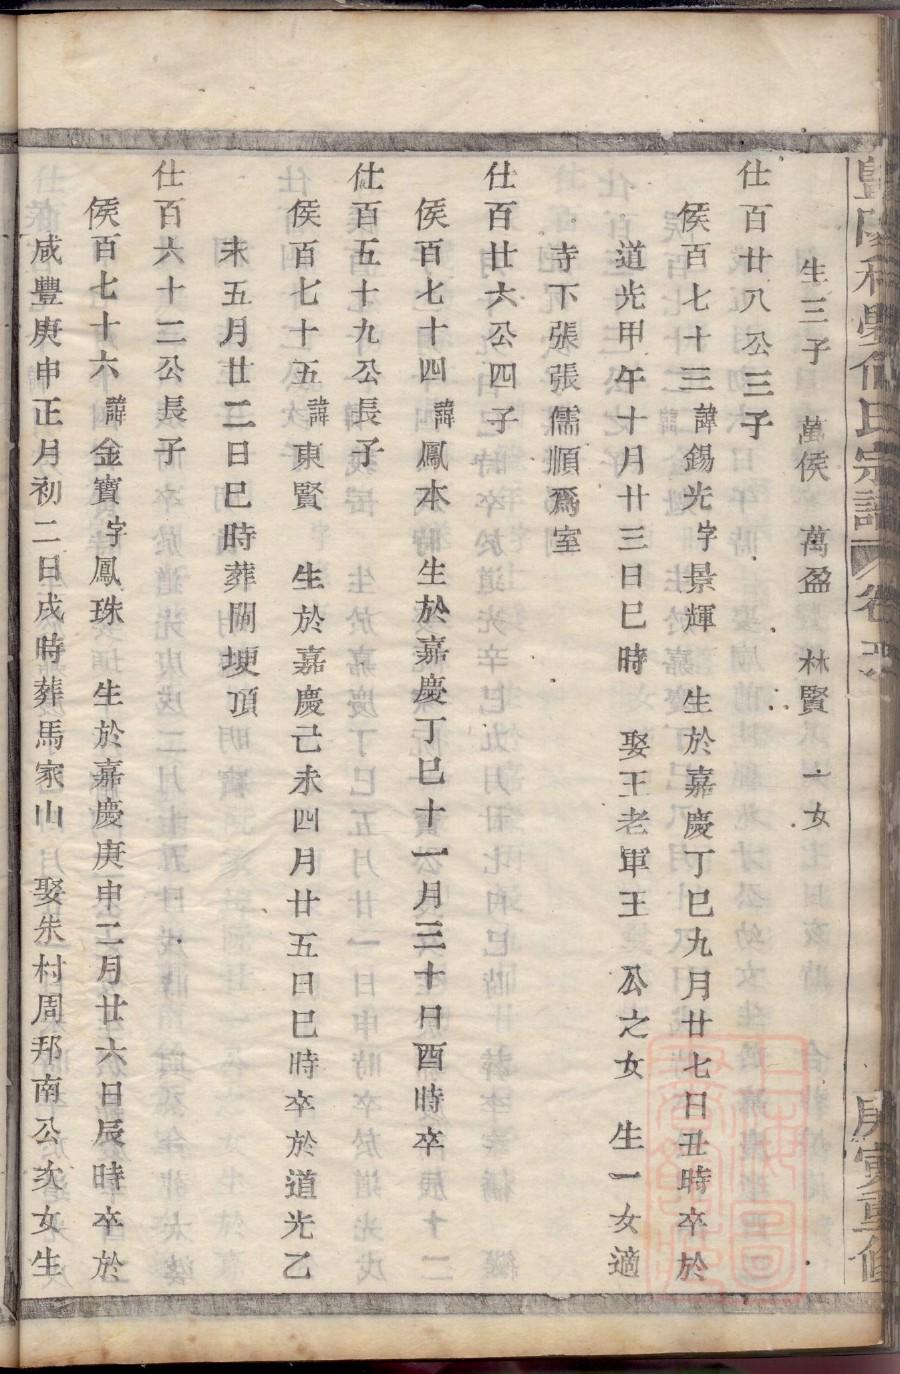 生三子 萬侯 萬盈 林賢 一女
仕百廿八公三子
侯百七十三諱錫光字景輝 生於嘉慶丁巳九月廿七日丑時卒於
道光甲午十月廿三日巳時 娶王老軍王 公之女 生一女適
寺下張張儒順爲室
仕百廿六公四子
侯百七十四諱鳳本 生於嘉慶丁巳十一月三十日酉時卒
仕百五十九公長子
侯百七十五諱東賢 生於嘉慶己未四月廿五日巳時卒於道光乙
未五月廿二日巳時葬閘埂頂
仕百六十二公長子
侯百七十六諱金寶字鳳珠 生於嘉慶庚申二月廿六日辰時卒於
咸豐庚申正月初二日戌時葬馬家山 娶朱村周邦南公次女生